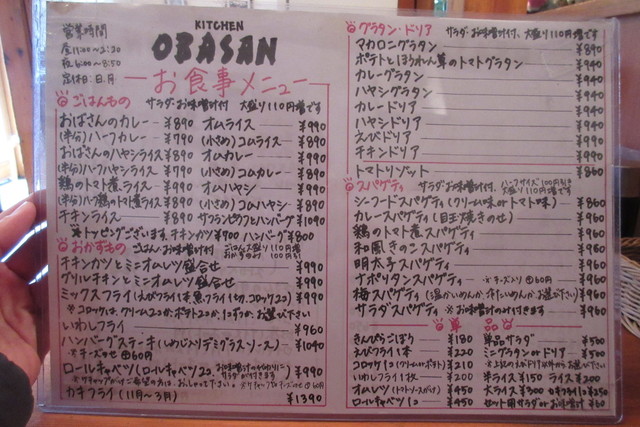 営業時間
昼11:30〜2:30
夜6:00〜8:50
定休日:日.月
KITCHEN
OBASAN
お食事メニュー
ごはんもの サラダ・お味噌汁付 大盛り110円増です
おばさんのカレー ¥890
(半分)ハーフカレー ¥790
おばさんのハヤシライス ¥890
(半分)ハーフハヤシライス ¥790
鶏のトマト煮ライス ¥990
(半分)ハーフ鶏のトマト煮ライス ¥890
チキンライス ¥890
オムライス ¥990
(小さめ)コムライス ¥890
オムカレー ¥990
(小さめ)コムカレー ¥890
オムハヤシ ¥990
(小さめ)コムハヤシ ¥890
サフランピラフとハンバーグ ¥1090
※トッピングございます。チキンカツ¥400 ハンバーグ¥800
おかずもの ごはん・お味噌汁付
チキンカツとミニオムレツ盛合せ ¥990
グリルチキンとミニオムレツ盛合せ ¥990
ミックスフライ(えびフライ1本、魚フライ1切、コロッケ1コ) ¥990
※コロッケは、クリーム2コか、ポテト2コか、1コずつか、お選び下さい
いわしフライ ¥960
ハンバーグステーキ(いためじりデミグラスソース) ¥1040
※チーズのせ ⊕60円
ロールキャベツ(ロールキャベツ2コ) ¥990
カキフライ(11月〜3月) ¥1390
グラタン・ドリア サラダ・お味噌汁付、大盛り110円増です
マカロニグラタン ¥890
ポテトとほうれん草のトマトグラタン ¥940
カレーグラタン ¥940
ハヤシグラタン ¥940
カレードリア ¥940
ハヤシドリア ¥940
えびドリア ¥940
チキンドリア ¥940
トマトリゾット ¥860
スパゲティ サラダ・お味噌汁付、ハーフサイズ100円引き 大盛り110円増です
シーフードスパゲティ(クリーム味orトマト味) ¥860
カレースパゲティ(目玉焼きのせ) ¥960
鶏のトマト煮スパゲティ ¥960
和風きのこスパゲティ ¥960
明太子スパゲティ ¥960
ナポリタンスパゲティ ※チーズ入り⊕60円 ¥960
梅スパゲティ(温かいめんか、冷たいめんか、お選び下さい) ¥960
サラダスパゲティ ※お味噌汁のみ付きます ¥960
単品
きんぴらごぼう ¥180
えびフライ1本 ¥220
コロッケ1コ(クリームorポテト) ¥210
いわしフライ1枚 ¥200
オムレツ(トマトソースがけ) ¥450
ロールキャベツ1コ ¥450
単品サラダ ¥500
ミニグラタンorドリア ¥500
半ライス¥150 ライス¥200
大ライス¥300
セット用サラダorお味噌汁 ¥60